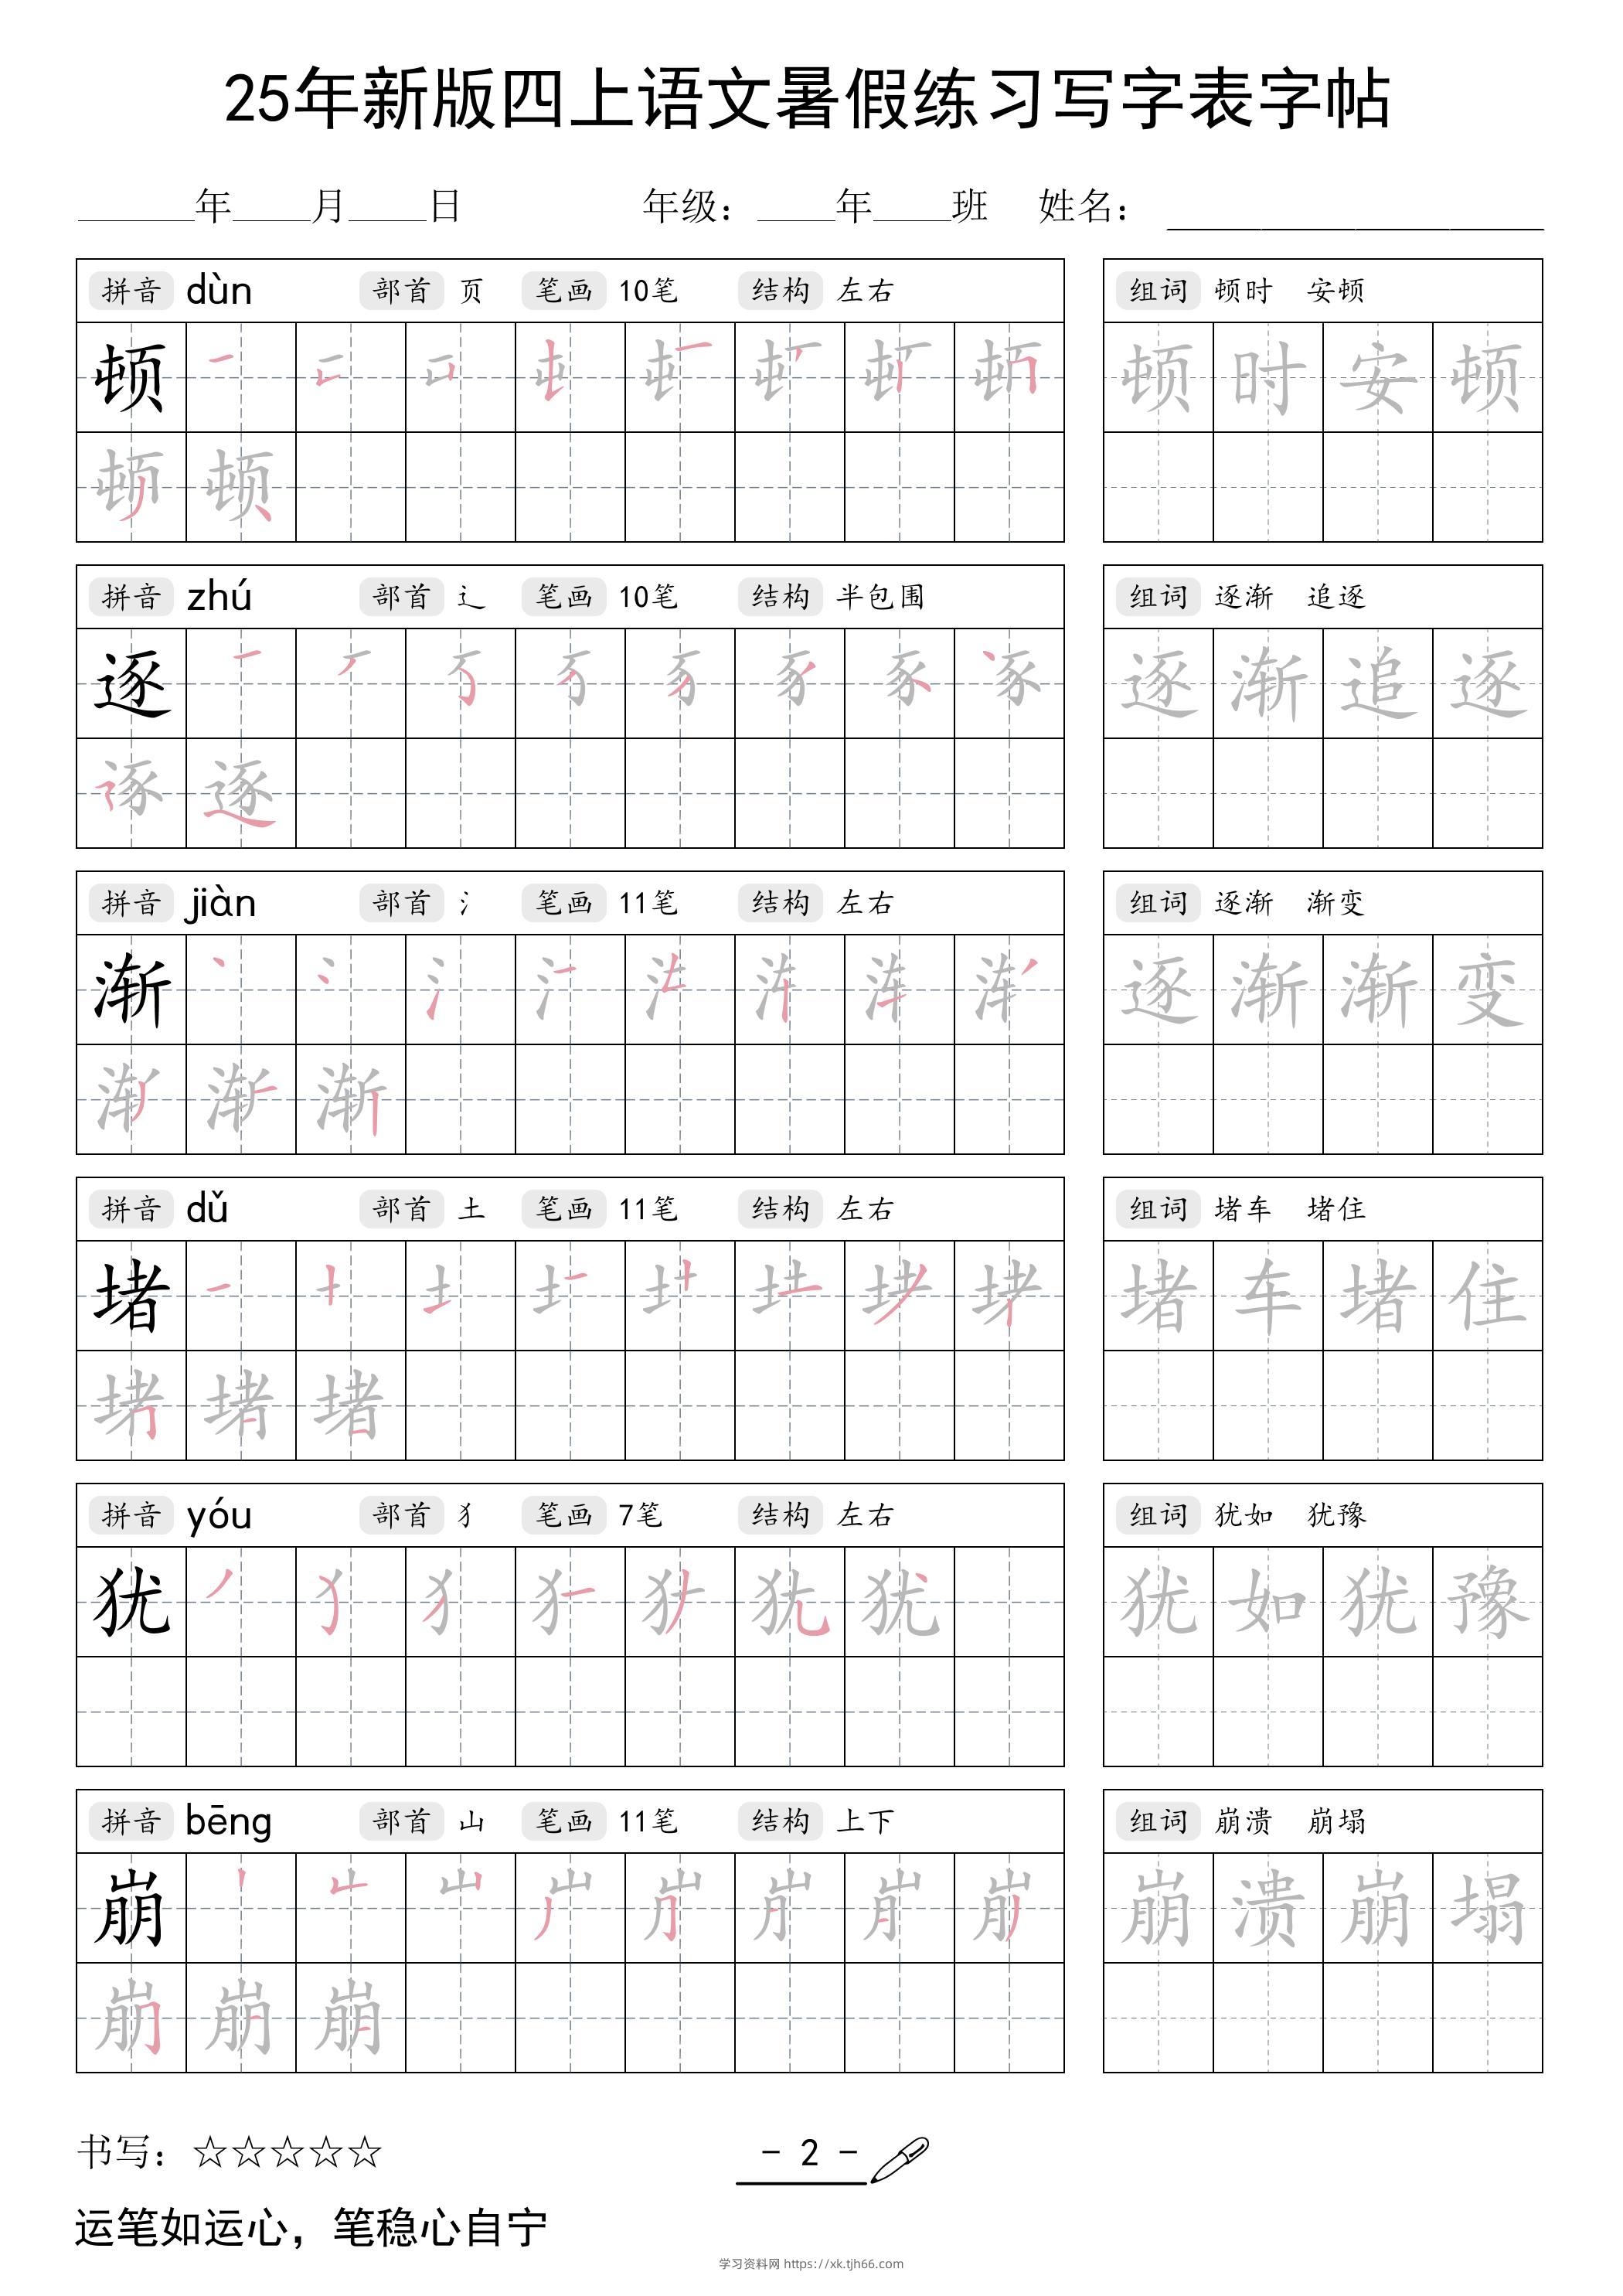 25年新版四上语文暑假练习写字表字帖
______年____月____日 年级：____年____班 姓名：____________________
拼音 dùn 部首 页 笔画 10笔 结构 左右 组词 顿时 安顿
顿 顿 时 安 顿
顿 顿
拼音 zhú 部首 辶 笔画 10笔 结构 半包围 组词 逐渐 追逐
逐 逐 渐 追 逐
逐
拼音 jiàn 部首 氵 笔画 11笔 结构 左右 组词 逐渐 渐变
渐 逐 渐 渐 变
渐
拼音 dǔ 部首 土 笔画 11笔 结构 左右 组词 堵车 堵住
堵 堵 车 堵 住
堵
拼音 yóu 部首 犭 笔画 7笔 结构 左右 组词 犹如 犹豫
犹 犹 犹 如 犹 豫
拼音 bēng 部首 山 笔画 11笔 结构 上下 组词 崩溃 崩塌
崩 崩 溃 崩 塌
崩
书写：☆☆☆☆☆
- 2 -
运笔如运心，笔稳心自宁
学习资料网 https://xk.tjh66.com